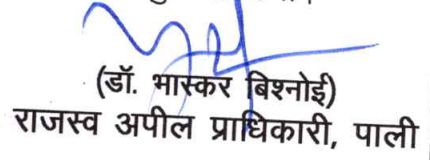 (डॉ. भास्कर बिश्नोई)
राजस्व अपील प्राधिकारी, पाली